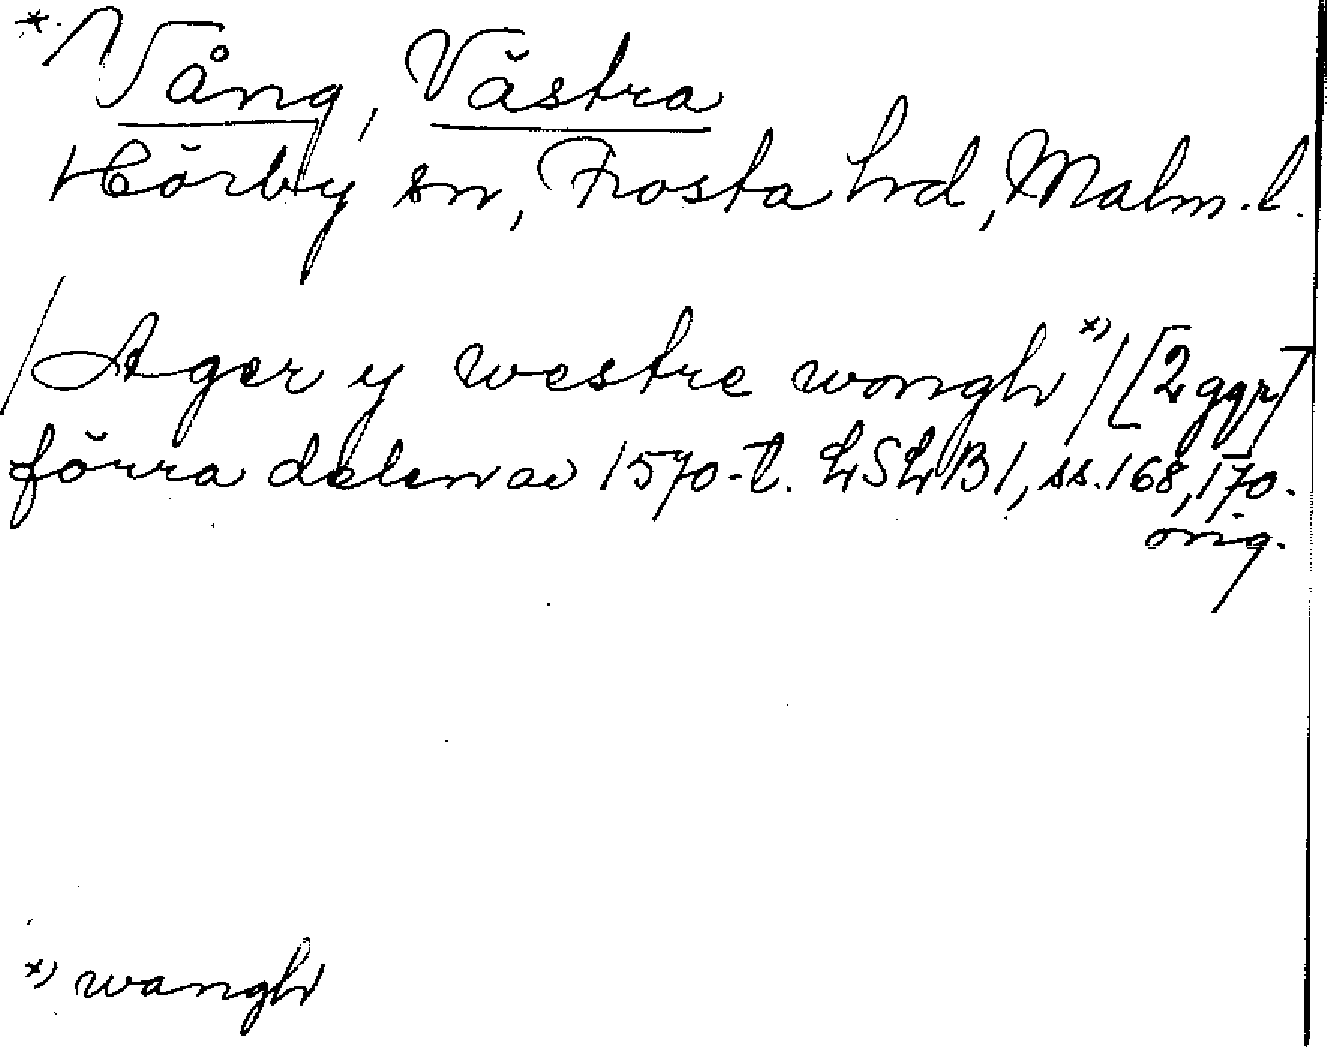 * Vång, Västra
Hörby sn, Frosta hd, Malm. l.
/Ager y westre wongh *)/ [2 ggr]
förra delen av 1570-t. LSLB 1, ss. 168, 170.
orig.
*) wangh